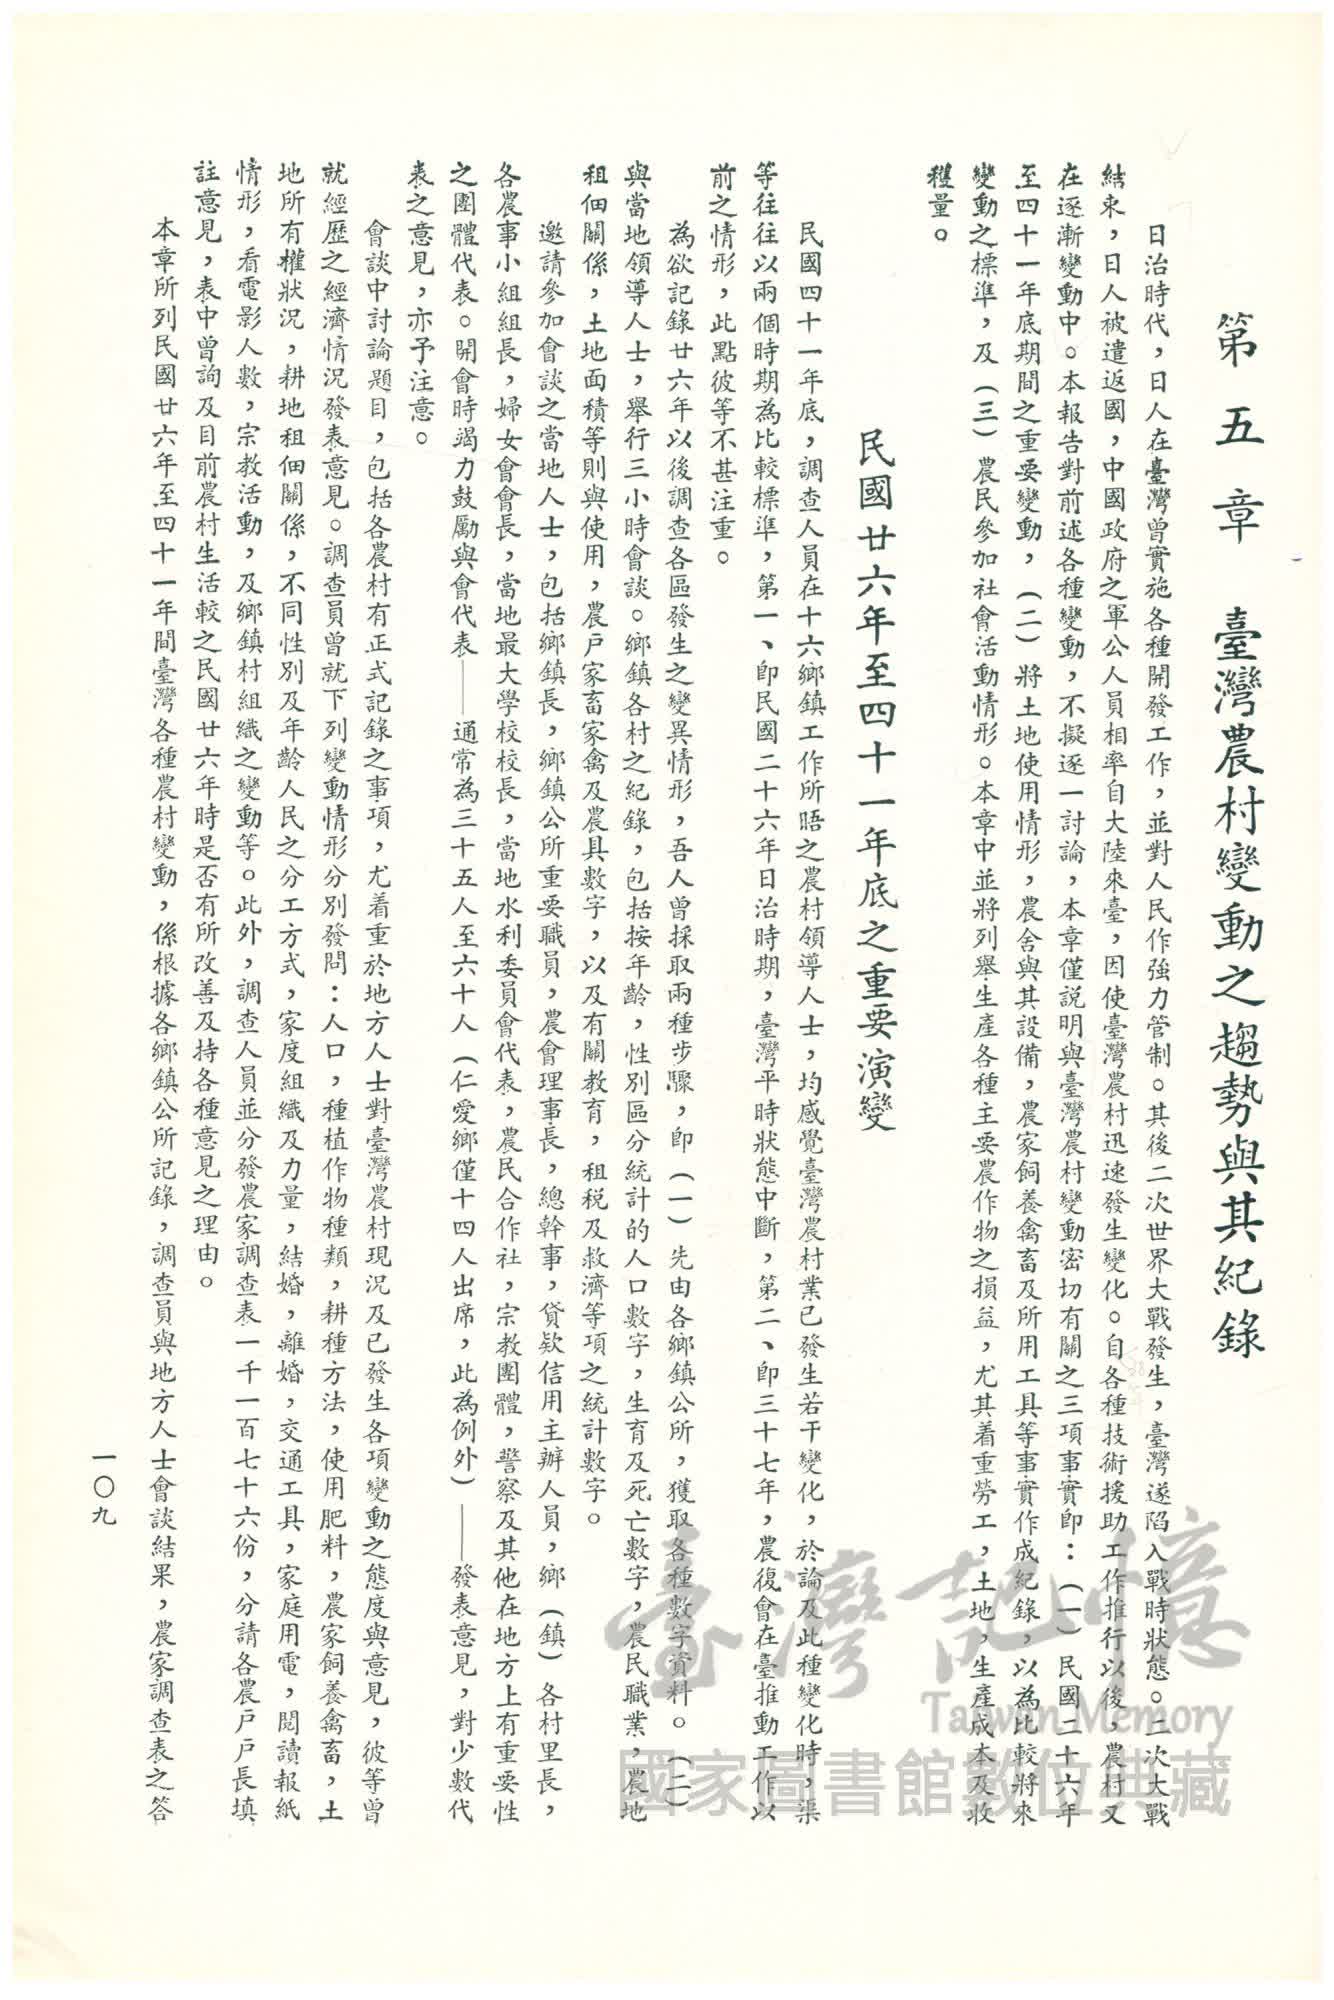 第五章　臺灣農村變動之趨勢與其紀錄
日治時代，日人在臺灣曾實施各種開發工作，並對人民作強力管制。其後二次世界大戰發生，臺灣遂陷入戰時狀態。二次大戰
結束，日人被遣返國，中國政府之軍公人員相率自大陸來臺，因使臺灣農村迅速發生變化。自各種技術援助工作推行以後，農村又
在逐漸變動中。本報告對前述各種變動，不擬逐一討論，本章僅說明與臺灣農村變動密切有關之三項事實即：（一）民國二十六年
至四十一年底期間之重要變動，（二）將土地使用情形，農舍與其設備，農家飼養禽畜及所用工具等事實作成紀錄，以為比較將來
變動之標準，及（三）農民參加社會活動情形。本章中並將列舉生產各種主要農作物之損益，尤其着重勞工，土地，生產成本及收
穫量。
民國廿六年至四十一年底之重要演變
民國四十一年底，調查人員在十六鄉鎮工作所晤之農村領導人士，均感覺臺灣農村業已發生若干變化，於論及此種變化時，渠
等往往以兩個時期為比較標準，第一、即民國二十六年日治時期，臺灣平時狀態中斷，第二、即三十七年，農復會在臺推動工作以
前之情形，此點彼等不甚注重。
為欲記錄廿六年以後調查各區發生之變異情形，吾人曾採取兩種步驟，即（一）先由各鄉鎮公所，獲取各種數字資料。（二）
與當地領導人士，舉行三小時會談。鄉鎮各村之紀錄，包括按年齡，性別區分統計的人口數字，生育及死亡數字，農民職業，農地
租佃關係，土地面積等則與使用，農戶家畜家禽及農具數字，以及有關教育，租稅及救濟等項之統計數字。
邀請參加會談之當地人士，包括鄉鎮長，鄉鎮公所重要職員，農會理事長，總幹事，貸欵信用主辦人員，鄉（鎮）各村里長，
各農事小組組長，婦女會會長，當地最大學校校長，當地水利委員會代表，農民合作社，宗教團體，警察及其他在地方上有重要性
之團體代表。開會時竭力鼓勵與會代表——通常為三十五人至六十人（仁愛鄉僅十四人出席，此為例外）——發表意見，對少數代
表之意見，亦予注意。
會談中討論題目，包括各農村有正式記錄之事項，尤着重於地方人士對臺灣農村現況及已發生各項變動之態度與意見，彼等曾
就經歷之經濟情況發表意見。調查員曾就下列變動情形分別發問：人口，種植作物種類，耕種方法，使用肥料，農家飼養禽畜，土
地所有權狀況，耕地租佃關係，不同性別及年齡人民之分工方式，家庭組織及力量，結婚，離婚，交通工具，家庭用電，閱讀報紙
情形，看電影人數，宗教活動，及鄉鎮村組織之變動等。此外，調查人員並分發農家調查表一千一百七十六份，分請各農戶戶長填
註意見，表中曾詢及目前農村生活較之民國廿六年時是否有所改善及持各種意見之理由。
本章所列民國廿六年至四十一年間臺灣各種農村變動，係根據各鄉鎮公所記錄，調查員與地方人士會談結果，農家調查表之答
一〇九
臺灣記憶
Taiwan Memory
國家圖書館數位典藏